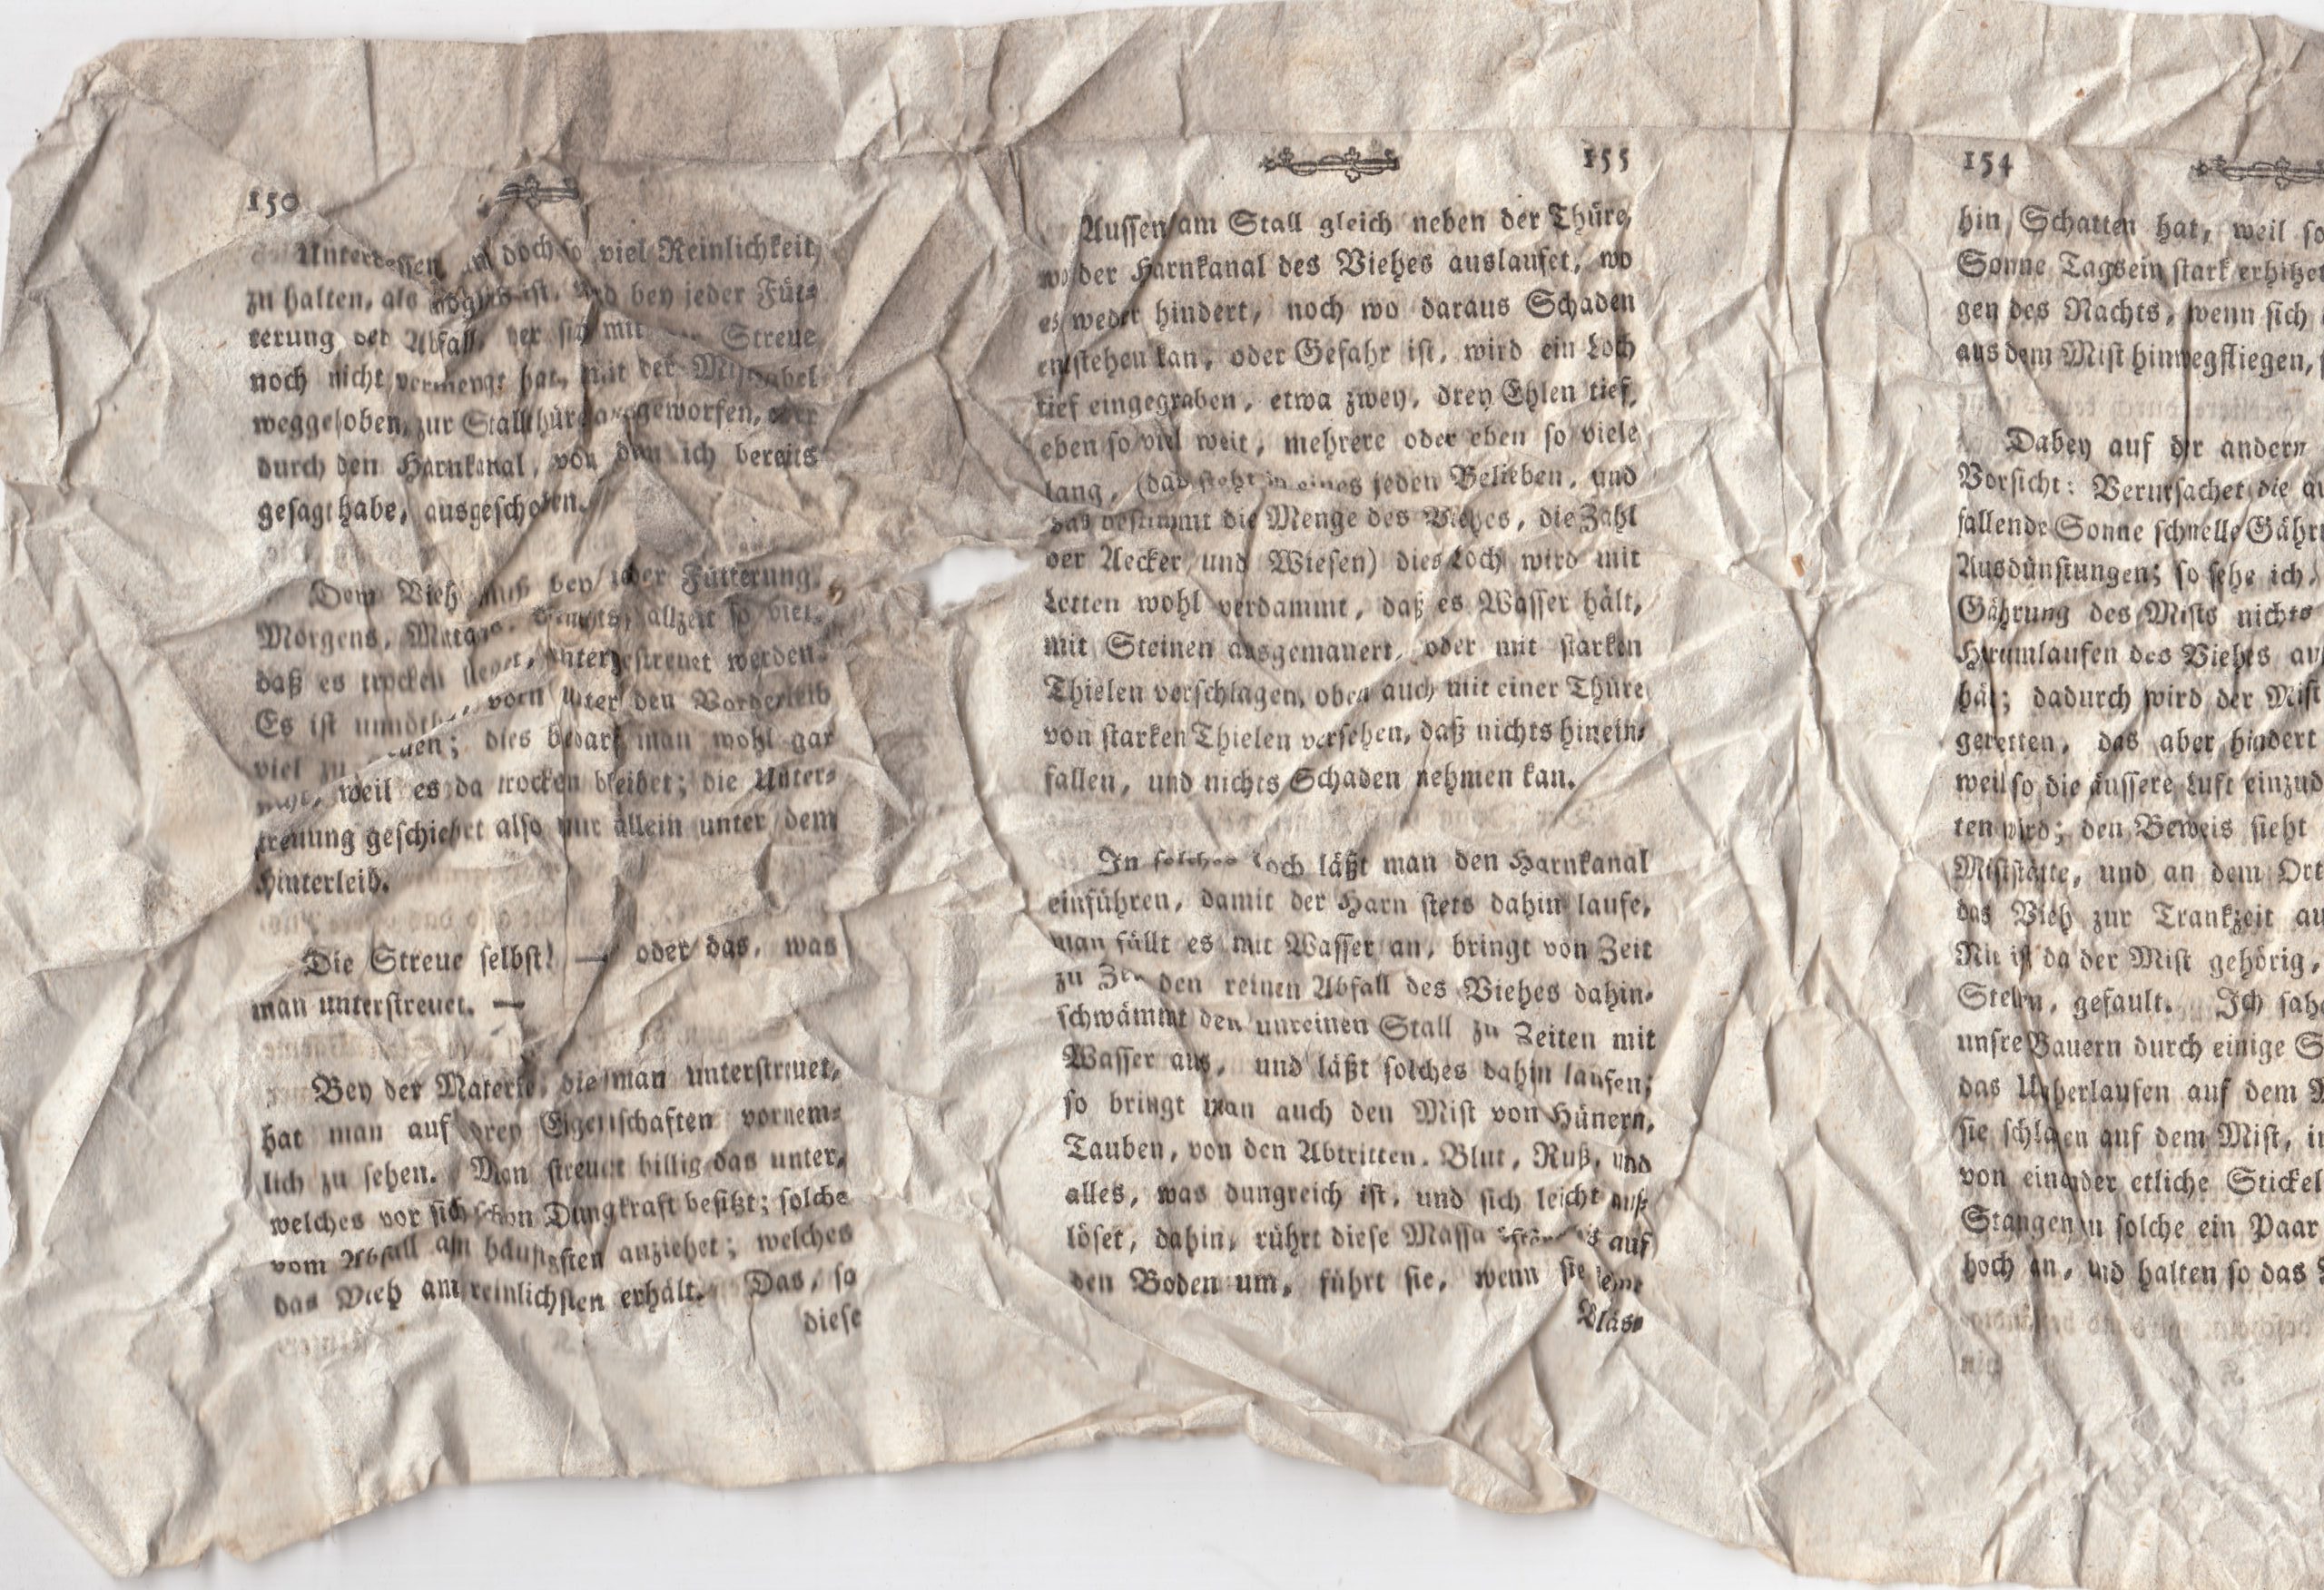 150
Unterdessen doch so viel Reinlichkeit
zu halten, als ist. Und bey jeder Füt-
terung der Abfall, der sich mit Streue
noch nicht vermengt hat, mit der Mistgabel
weggehoben, zur Stallthür geworfen, oder
durch den Harnkanal, von dem ich bereits
gesagt habe, ausgeschoben.
Dem Vieh muß bey jeder Fütterung,
Morgens, allzeit so viel,
daß es trocken untergestreuet werden.
Es ist vorn unter den Vorderleib
viel zu dies bedarf man wohl gar
weil es da trocken bleibet; die Unter-
streuung geschiehet also nur allein unter dem
Hinterleib.
Die Streue selbst! — oder das, was
man unterstreuet. —
Bey der Materie, die man unterstreuet,
hat man auf drey Eigenschaften vornem-
lich zu sehen. Man streuet billig das unter,
welches vor sich schon Dungkraft besitzt; solche
vom Abfall am häufigsten anziehet; welches
das Vieh am reinlichsten erhält. Das, so
diese
155
Aussen am Stall gleich neben der Thüre,
wo der Harnkanal des Viehes auslaufet, wo
es weder hindert, noch wo daraus Schaden
entstehen kan, oder Gefahr ist, wird ein Loch
tief eingegraben, etwa zwey, drey Ehlen tief,
eben so viel weit, mehrere oder eben so viele
lang, (das steht in eines jeden Belieben, und
das bestimmt die Menge des Viehes, die Zahl
der Aecker und Wiesen) dies Loch wird mit
Letten wohl verdammt, daß es Wasser hält,
mit Steinen ausgemauert, oder mit starken
Thielen verschlagen, oben auch mit einer Thüre
von starken Thielen versehen, daß nichts hinein-
fallen, und nichts Schaden nehmen kan.
In solches Loch läßt man den Harnkanal
einführen, damit der Harn stets dahin laufe,
man füllt es mit Wasser an, bringt von Zeit
zu Zeit den reinen Abfall des Viehes dahin,
schwämmt den unreinen Stall zu Zeiten mit
Wasser aus, und läßt solches dahin laufen;
so bringt man auch den Mist von Hünern,
Tauben, von den Abtritten, Blut, Ruß, und
alles, was dungreich ist, und sich leicht auf-
löset, dahin, rührt diese Massa auf
den Boden um, führt sie, wenn sie
Bläs-
154
hin Schatten hat, weil so
Sonne Tagsein stark erhitzet
gen des Nachts, wenn sich
aus dem Mist hinwegfliegen,
Dabey auf der andern
Vorsicht: Verursachet die
fallende Sonne schnelle
Ausdünstungen; so sehe ich,
Gährung des Mists nichts
Herumlaufen des Viehes
hat; dadurch wird der Mist
geretten, das aber hindert
weil so die äussere Luft
ten wird; den Beweis sieht
Miststätte, und an dem Ort
das Vieh zur Trankzeit
Nie ist da der Mist gehörig,
Stelen, gefault. Ich sahe
unsre Bauern durch einige
das Ueberlaufen auf dem
sie schlagen auf dem Mist,
von einander etliche Stickel
Stangen in solche ein Paar
hoch an, und halten so das